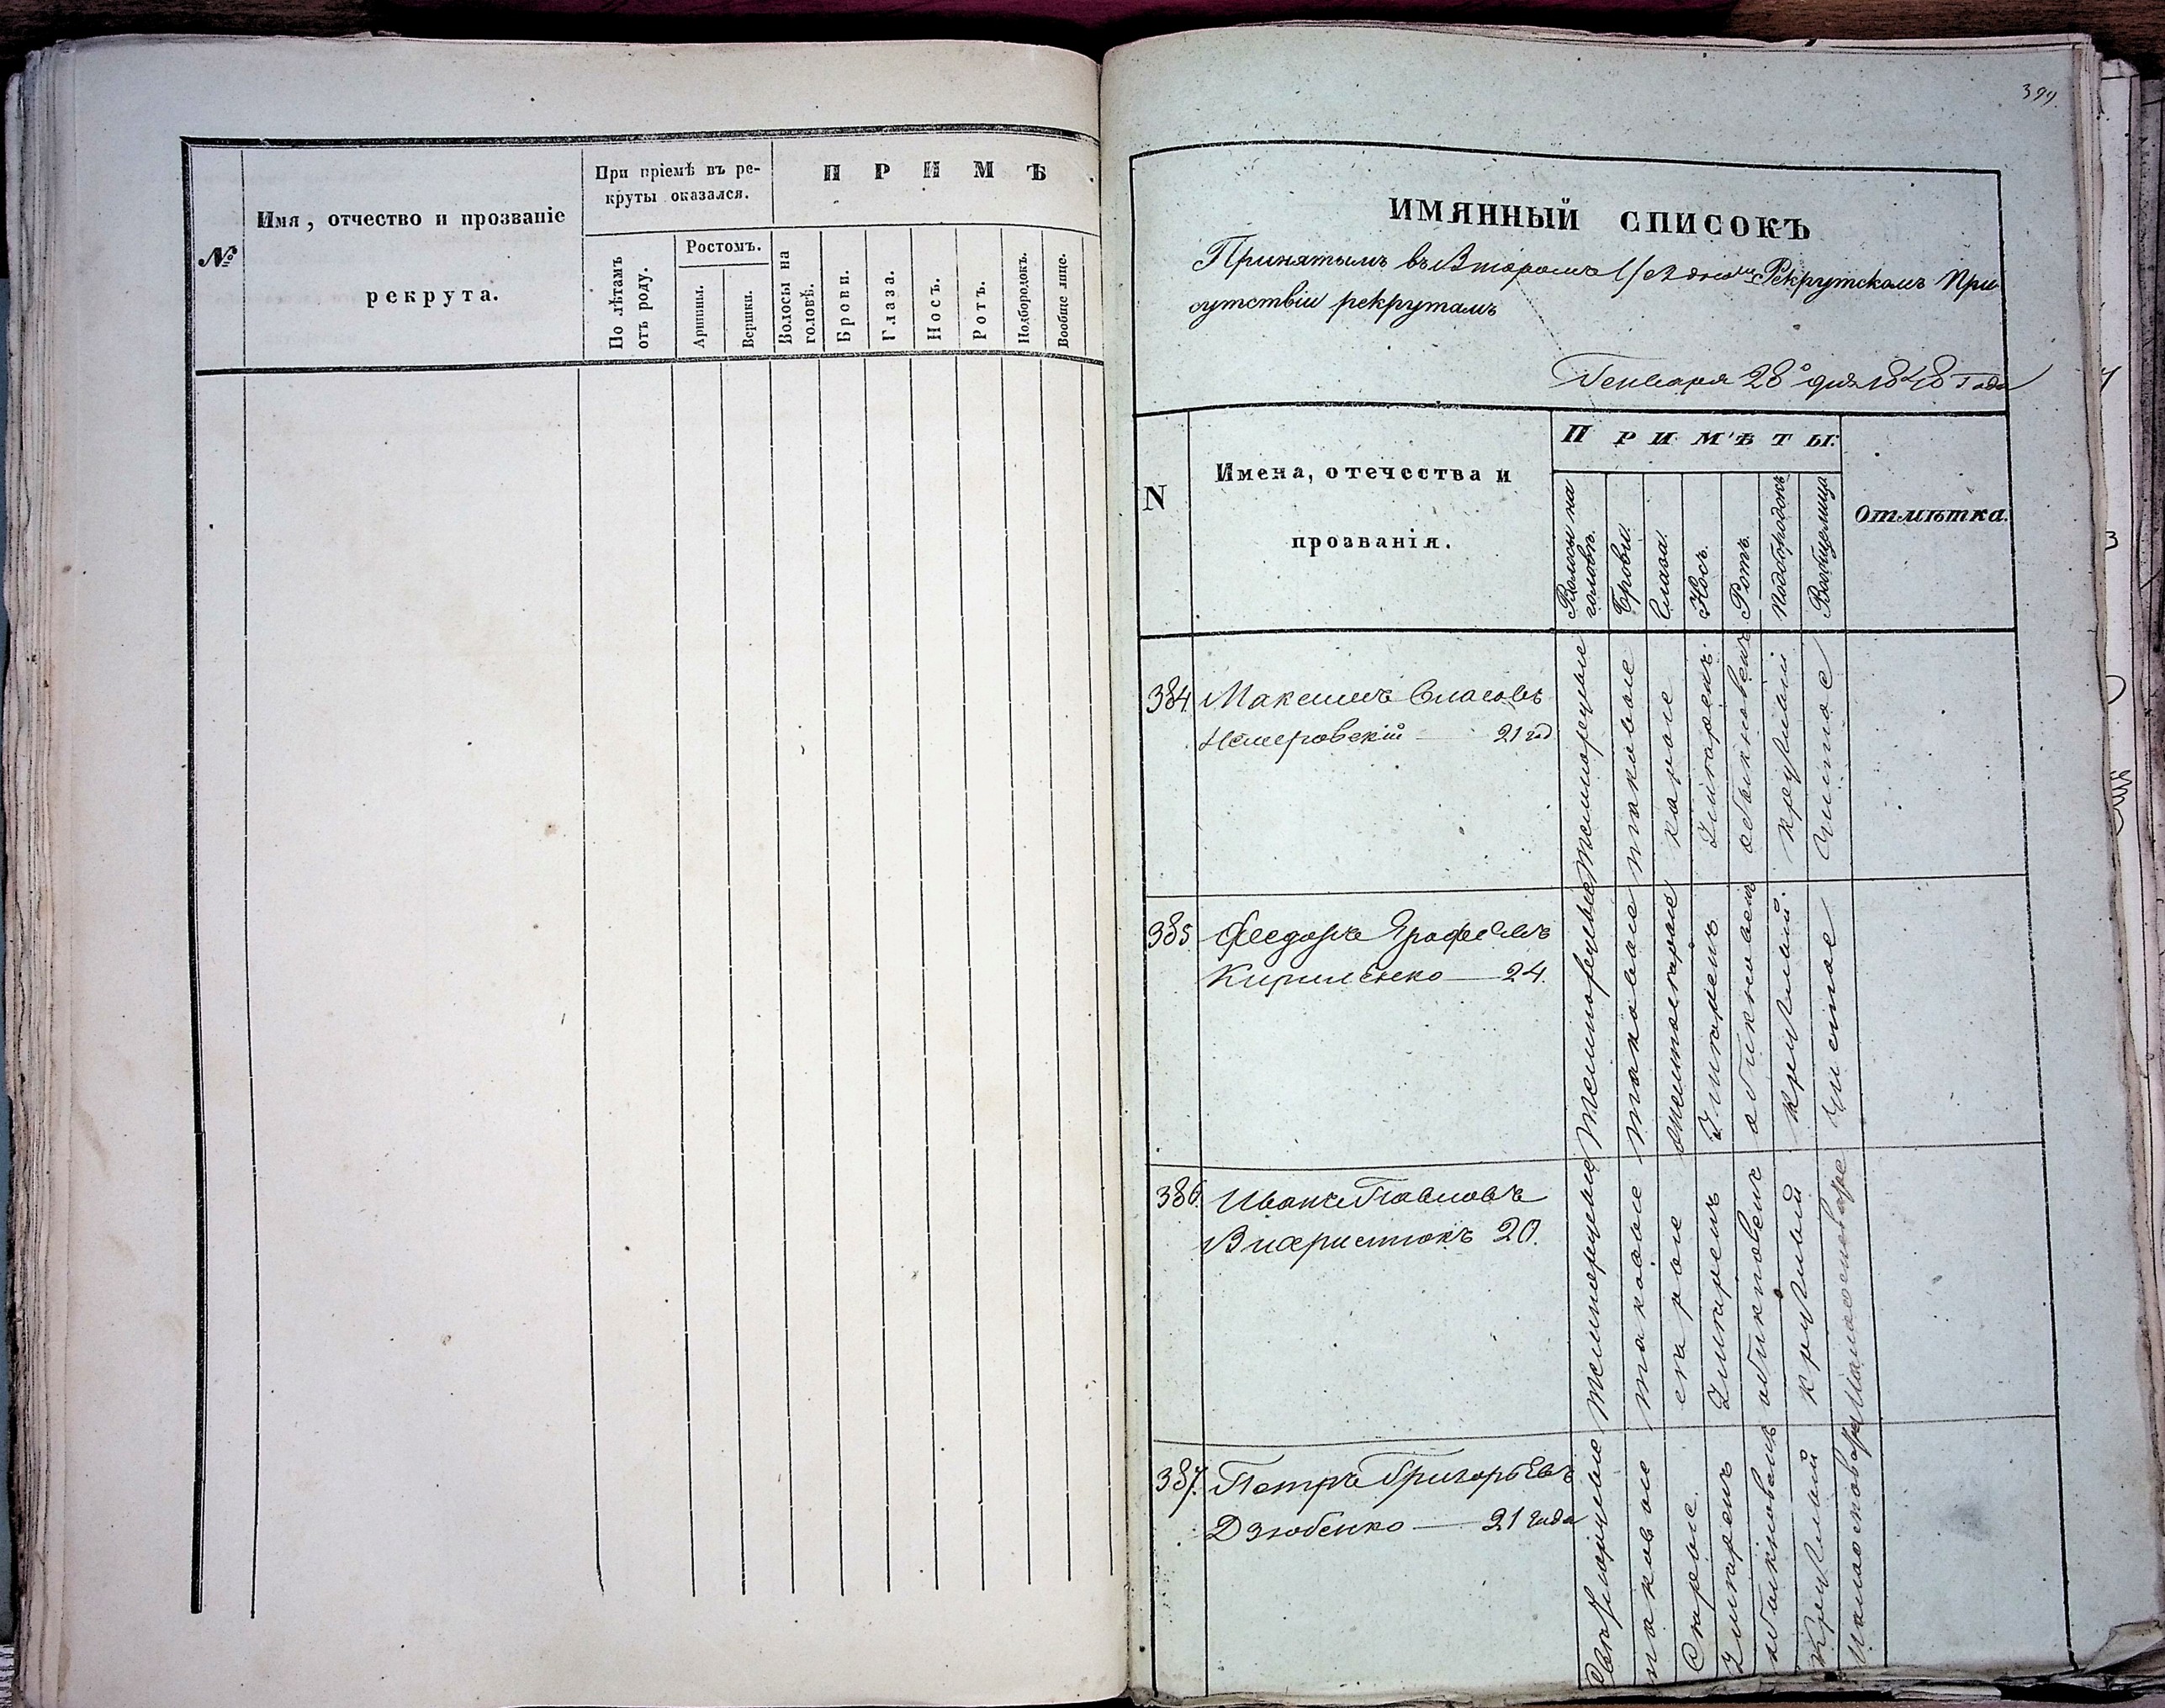 №
Имя, отчество и прозваніе
рекрута.
При пріемѣ въ ре-
круты оказался.
По лѣтамъ
отъ роду.
Ростомъ.
Аршины.
Вершки.
П Р И М Ѣ
Волосы на
головѣ.
Брови.
Глаза.
Носъ.
Ротъ.
Подбородокъ.
Вообще лице.
ИМЯННЫЙ СПИСОКЪ
Принятымъ въ Второмъ Рекрутскомъ При
сутствіи рекрутамъ
Генваря 28 дня 1848 Года
N
Имена, отечества и
прозванія.
П Р И М Ѣ Т Ы.
Волосы на
головѣ.
Брови.
Глаза.
Носъ.
Ротъ.
Подбородокъ
Вообще лица
Отмѣтка.
384 Максимъ Власовъ
Немеровскій — 21 год
темнорусые
таковые
карые
умѣрен:
обыкновен
круглый
чистое
385 Феодоръ
Кириленко — 24.
темнорусые
таковые
умѣрен
обыкновен
круглый
чистое
386. Иванъ Павловъ
Вихристюкъ 20.
темнорусые
таковые
серые
умѣрен
обыкновен
круглый
387. Петръ Григорьевъ
Дзюбенко — 21 года
таковые
Серые.
умѣрен
обыкновен
круглый